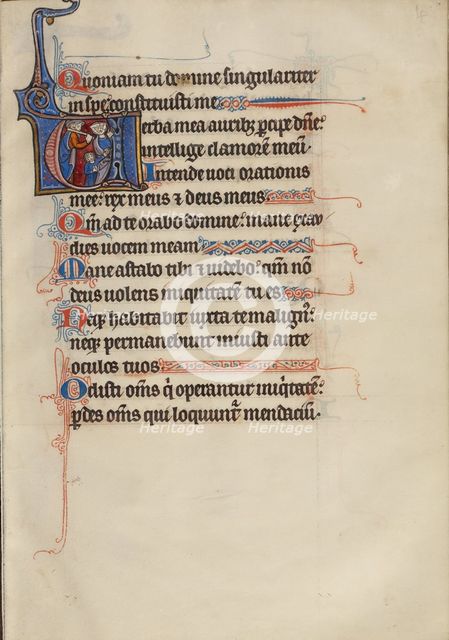 Quoniam tu domine singulariter
in spe constituisti me
Verba mea auribꝫ ꝑcipe dn̄e:
intellige clamorem meū.
Intende uoci orationis
mee: rex meus ⁊ deus meus.
Qm̄ ad te orabo domine: mane exau
dies uocem meam.
Mane astabo tibi ⁊ uidebo: qm̄ nō
deus uolens iniquitatē tu es.
Neqꝫ habitabit iuxta te malign⁹:
neqꝫ permanebunt iniusti ante
oculos tuos.
Odisti om̄s q̇ operantur iniq̇tatē:
ꝑdes om̄s qui loquunt᷑ mendaciū.
Heritage Heritage
Heritage Heritage
Heritage Heritage